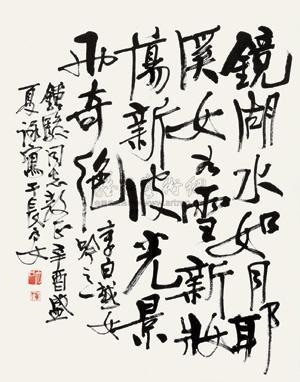 鏡湖水如月耶
溪女如雪新妝
蕩新波光景
兩奇絕
李白越女
吟之一
同志教正辛酉盛
夏詠寫于長安